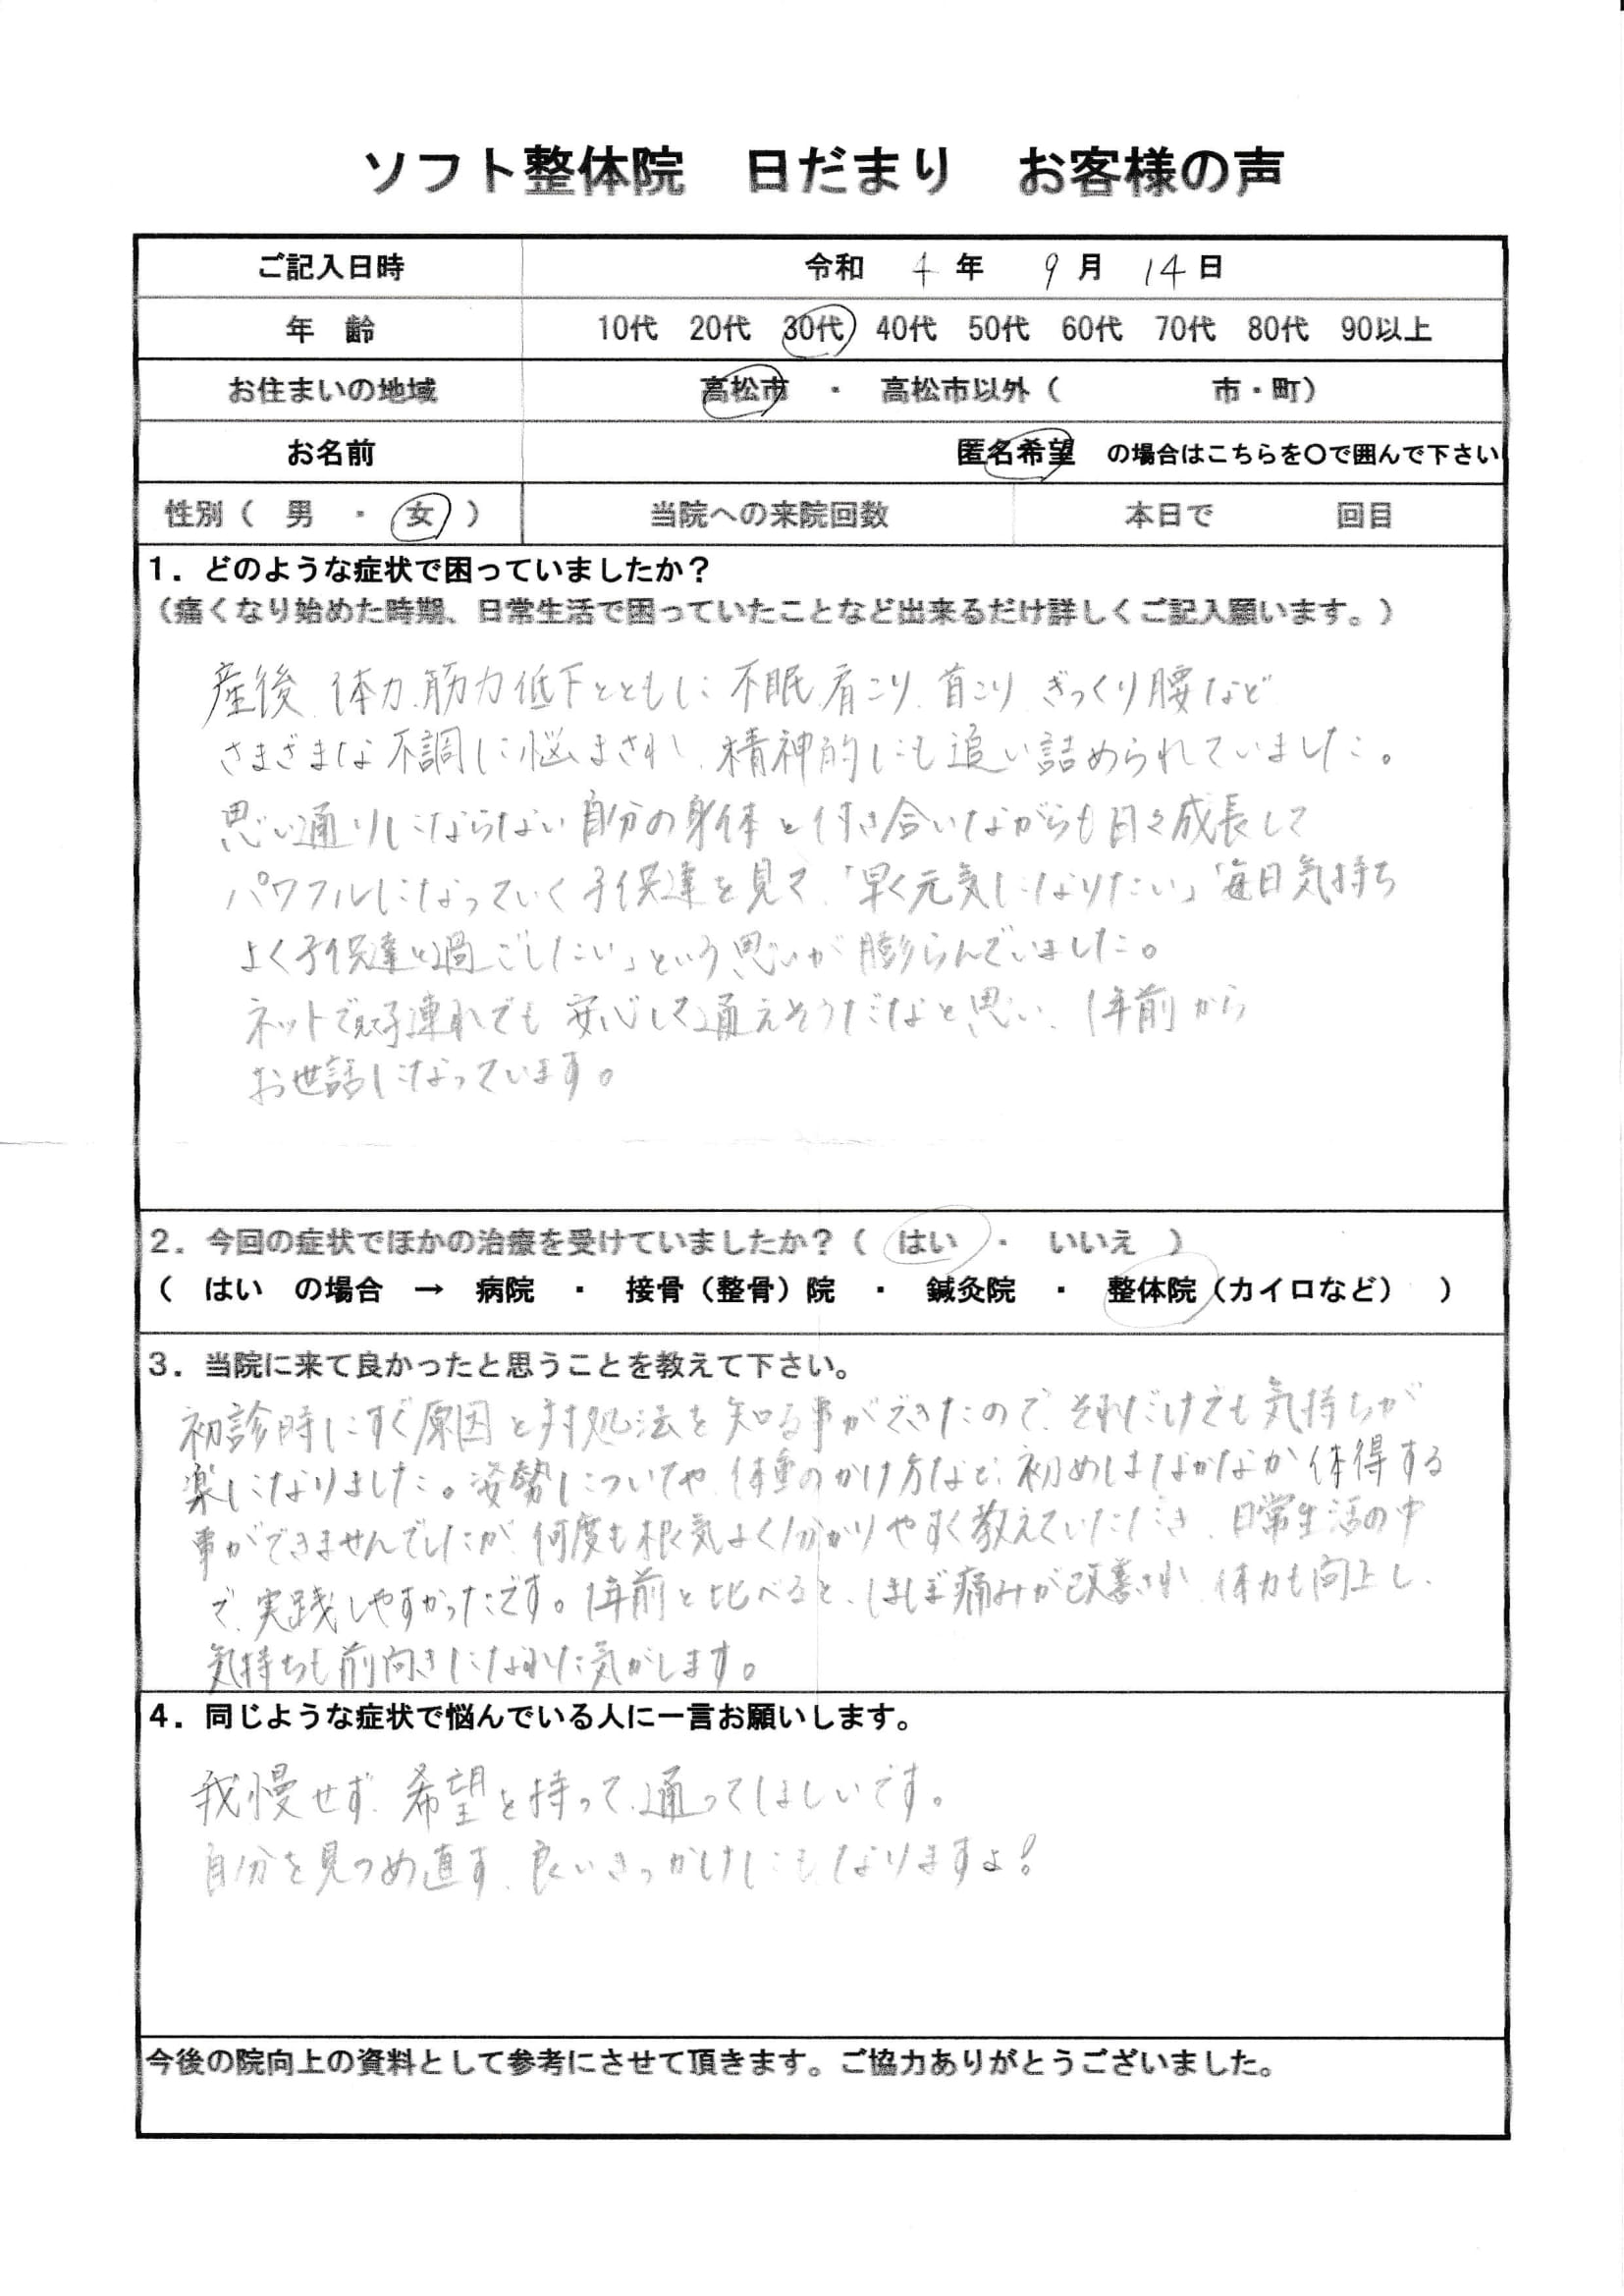 ソフト整体院 日だまり お客様の声
ご記入日時 令和 4 年 9 月 14 日
年 齢 10代 20代 30代 40代 50代 60代 70代 80代 90以上
お住まいの地域 高松市 ・ 高松市以外（ 市・町）
お名前 匿名希望 の場合はこちらを〇で囲んで下さい
性別（ 男 ・ 女 ） 当院への来院回数 本日で 回目
1．どのような症状で困っていましたか？
（痛くなり始めた時期、日常生活で困っていたことなど出来るだけ詳しくご記入願います。）
産後、体力、筋力低下とともに、不眠、肩こり、首こり、ぎっくり腰など
さまざまな不調に悩まされ、精神的にも追い詰められていました。
思い通りにならない自分の身体と付き合いながらも日々成長して
パワフルになっていく子供達を見て、「早く元気になりたい」「毎日気持ち
よく子供達と過ごしたい」という思いが膨らんでいました。
ネットで見て子連れでも安心して通えそうだなと思い、1年前から
お世話になっています。
2．今回の症状でほかの治療を受けていましたか？（ はい ・ いいえ ）
（ はい の場合 → 病院 ・ 接骨（整骨）院 ・ 鍼灸院 ・ 整体院（カイロなど） ）
3．当院に来て良かったと思うことを教えて下さい。
初診時にすぐ原因と対処法を知る事ができたので、それだけでも気持ちが
楽になりました。姿勢についてや、体重のかけ方など、初めはなかなか体得する
事ができませんでしたが、何度も根気よく分かりやすく教えていただき、日常生活の中
で、実践しやすかったです。1年前と比べると、ほぼ痛みが改善され、体力も向上し、
気持ちも前向きになれた気がします。
4．同じような症状で悩んでいる人に一言お願いします。
我慢せず、希望を持って、通ってほしいです。
自分を見つめ直す、良いきっかけにもなりますよ！
今後の院向上の資料として参考にさせて頂きます。ご協力ありがとうございました。